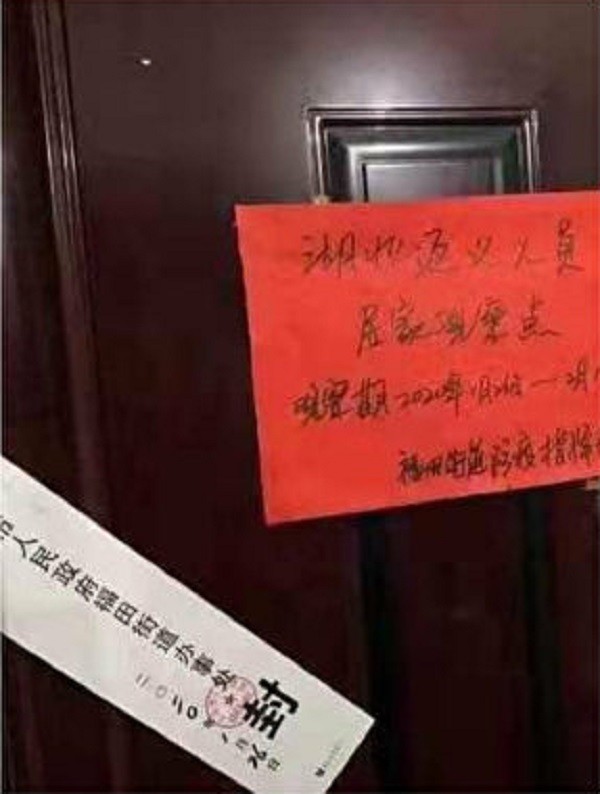 湖北返义人员
居家观察点
观察期2020年1月26日—2月
福田街道防疫指挥
市人民政府福田街道办事处
二〇二〇年1月26日
封